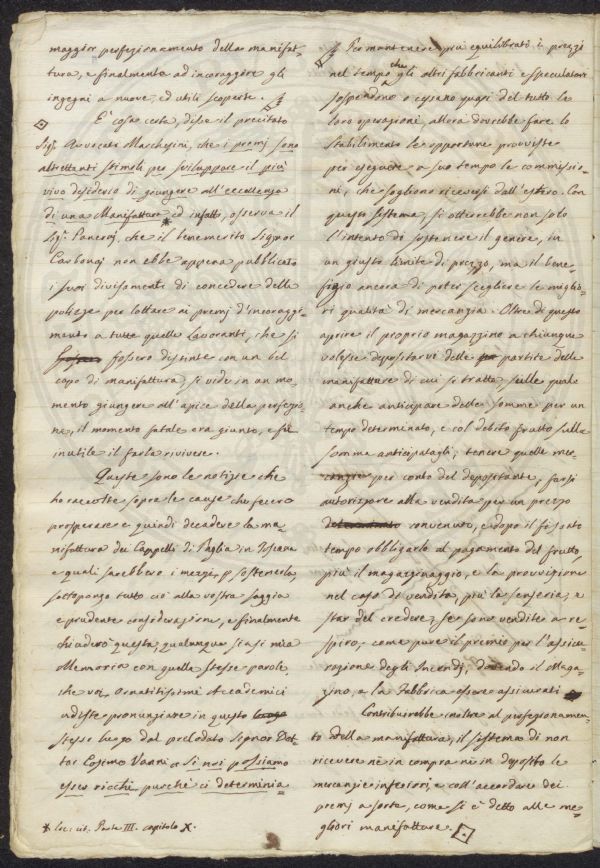 maggior perfezionamento della manifat-
tura, e finalmente ad incoraggire gli
ingegni a nuove, ed utili scoperte.
E' cosa certa, disse il precitato
Sig.r Avvocato Marchesini, che i premj sono
altrettanti stimoli per sviluppare il più
vivo desiderio di giungere all'eccellenza
di una Manifattura,* ed infatti, osserva il
Sig.r che il benemerito Signor
Carbonaj non ebbe appena pubblicato
i suoi divisamenti di concedere delle
polizze per lottare ai premj d'incoraggi-
mento a tutte quelle Lavoranti, che si
fossero distinte con un bel
capo di manifattura, si vide in un mo-
mento giungere all'apice della perfezio-
ne, il momento fatale era giunto, e fù
inutile il farla rivivere.
Queste sono le notizie che
ho raccolte sopra le cause che fecero
prosperare e quindi decadere la ma-
nifattura dei Cappelli di Paglia in Toscana
e quali sarebbero i mezzi p sostenerla,
sottopongo tutto ciò alla vostra saggia
e prudente considerazione, e finalmente
chiuderò questa, qualunque siasi mia
Memoria con quelle stesse parole,
che voi, Ornatissimi Accademici
udiste pronunziare in questo luogo
stesso luogo dal prelodato Signor Dot-
tor Cosimo Vanni = Si noi possiamo
esser ricchi purchè ci determinia-
* loc: cit. Parte III. capitolo X.
Per mantenere più equilibrati i prezzi
nel tempo che gli altri fabbricanti e speculatori
sospendono o cessano quasi del tutto le
loro operazioni, allora dovrebbe fare lo
stabilimento le opportune provviste
per eseguire a suo tempo le commissio-
ni, che sogliono riceversi dall'estero. Con
questo sistema, si otterrebbe non solo
l'intento di sostenere il genere, in
un giusto limite di prezzo, ma il bene-
fizio ancora di poter scegliere le miglio-
ri qualità di mercanzia. Oltre di questo
aprire il proprio magazzino a chiunque
volesse depositarvi delle partite delle
manifatture di cui si tratta, sulle quali
anche anticipare delle somme per un
tempo determinato, e col debito frutto sulla
somma anticipatagli; tenere quelle mer-
canzie per conto del depositante, farsi
autorizzare alla vendita per un prezzo
determinato convenuto, e dopo il fissato
tempo obbligarlo al pagamento del frutto,
più il magazzinaggio, e la provvisione
nel caso di vendita, più la senseria, e
star del credere, se sono vendite a re-
spiro, come pure il premio per l'assicu-
razione degli Incendj, dovendo il Maga-
zino, e la Fabbrica essere assicurati
Contribuirebbe inoltre al perfezionamen-
to della manifattura, il sistema di non
ricevere nè in compra nè in deposito le
mercanzie inferiori, e coll'accordare dei
premj a sorte, come si è detto alle me-
gliori manifatture.